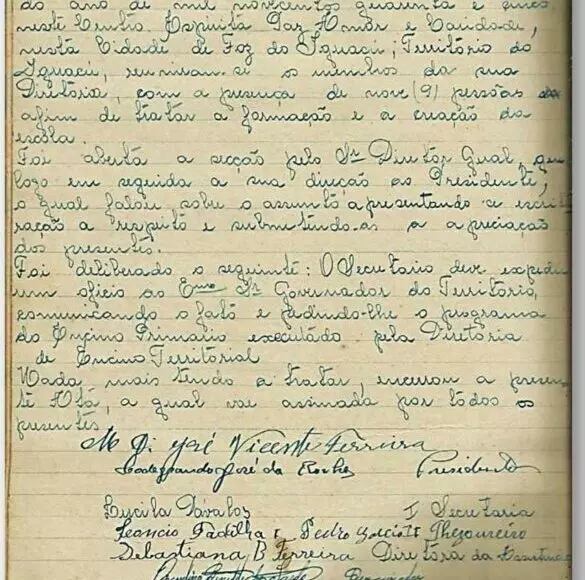 do ano de mil novecentos quarenta e cinco
neste Centro Espirita Paz Amôr e Caridade,
nesta Cidade de Foz do Iguaçú, Território do
Iguaçú, reuniram-se os membros da sua
Diretória, com a presença de nove (9) pessôas
afim de tratar a formação e a criação da
escola.
Foi abertá a secção pelo Snr Diretôr Geral, que
logo em seguida a sua direção ao Presidente,
o qual falou sobre o assuntó apresentando a escritu
ração a respeito e submetendo-as a apreciação
dos presentes.
Foi deliberado o seguinte: O Secretario deve expedir
um oficio ao Exmo Snr Governador do Território,
comunicando o fató e pedindo-lhe o programa
do Encino Primario executádo pela Diretoria
de Encino Territorial
Nada, mais tendo a tratar, encerrou a presen
te Atá, a qual vae assinada por tôdos os
presentes
José Vicente Ferreira
José da Rocha Presidente
Lucila Dávalos I Secretaria
Leoncio Padilha Pedro Thezoureiro
Sebastiana B Ferreira Diretora da